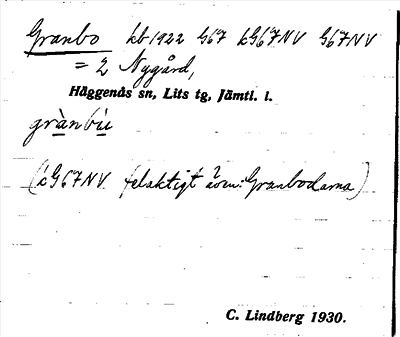 Granbo kb 1922 G67 kG67NV G67NV
= 2 Nygård,
Häggenås sn, Lits tg, Jämtl. l.
grànbù
(kG67NV felaktigt även: Granbodarna)
C. Lindberg 1930.